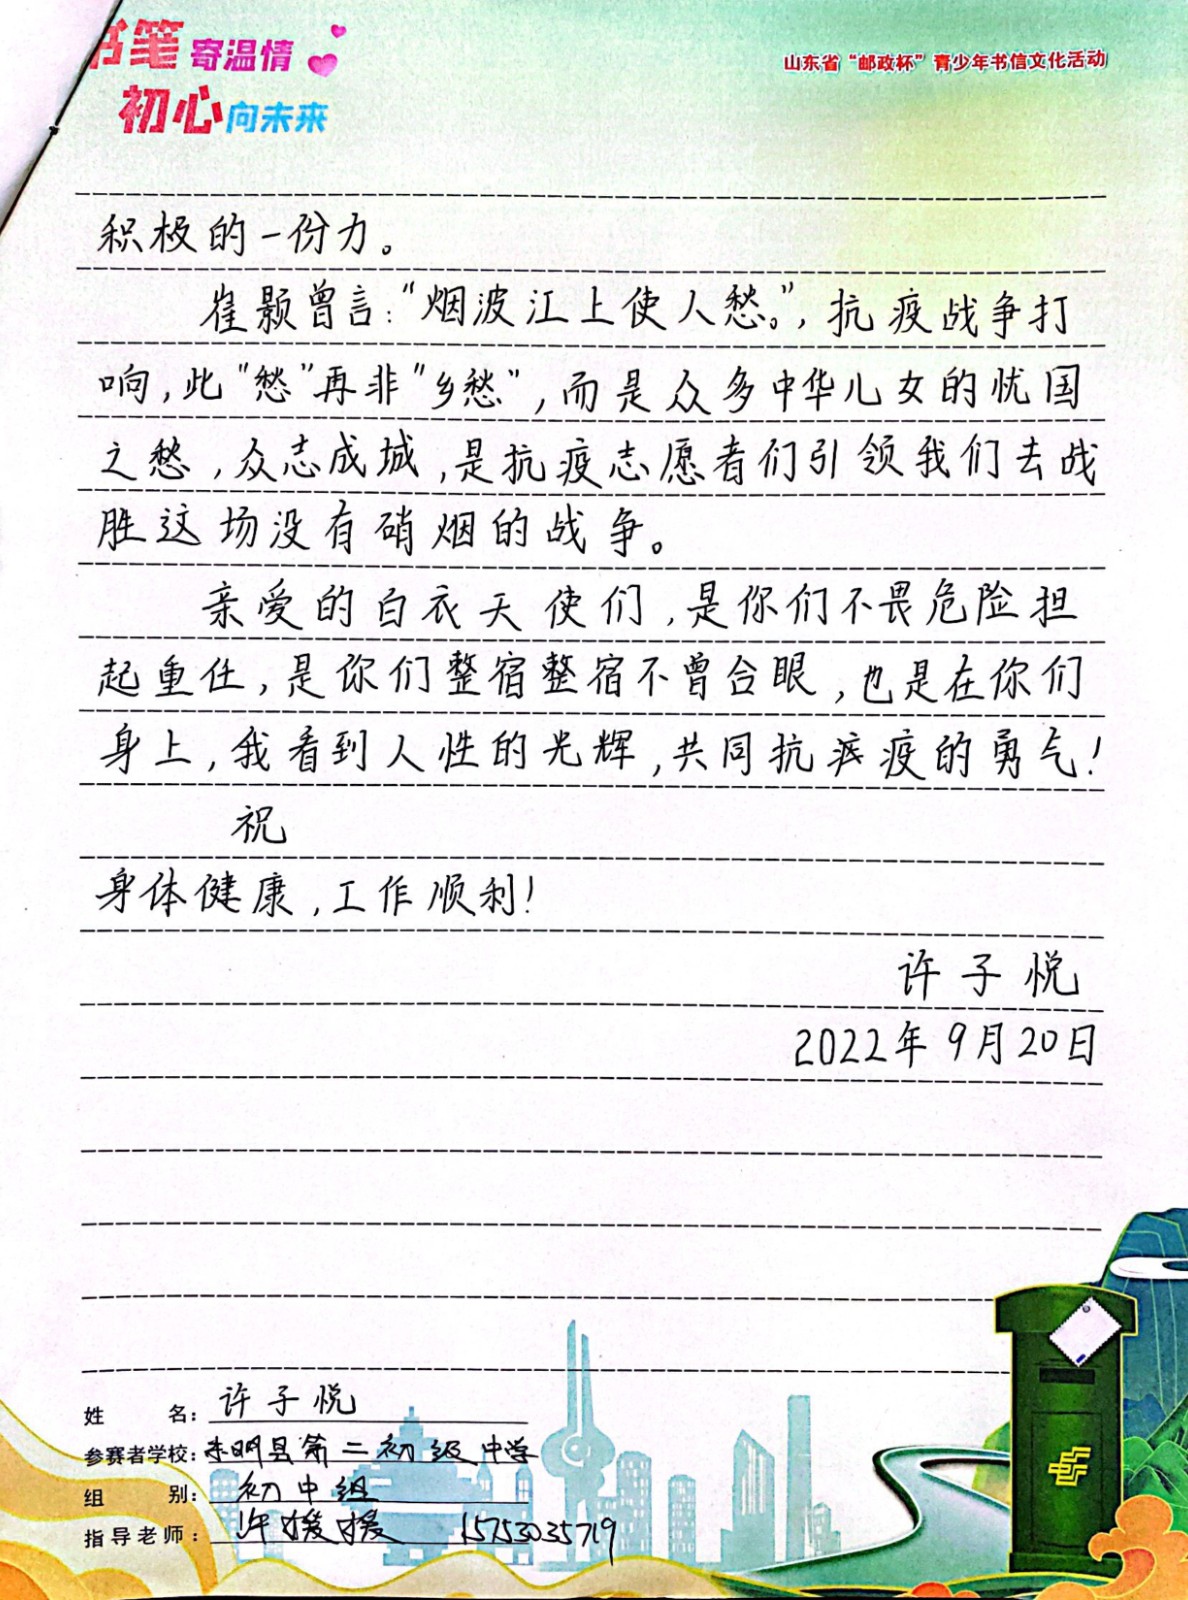 书笔 寄温情
初心 向未来
山东省“邮政杯”青少年书信文化活动
积极的一份力。
崔颢曾言：“烟波江上使人愁。”，抗疫战争打
响，此“愁”再非“乡愁”，而是众多中华儿女的忧国
之愁，众志成城，是抗疫志愿者们引领我们去战
胜这场没有硝烟的战争。
亲爱的白衣天使们，是你们不畏危险担
起重任，是你们整宿整宿不曾合眼，也是在你们
身上，我看到人性的光辉，共同抗疾疫的勇气！
祝
身体健康，工作顺利！
许子悦
2022年9月20日
姓 名：许子悦
参赛者学校：东明县第二初级中学
组 别：初中组
指导老师：许援援 15753035719